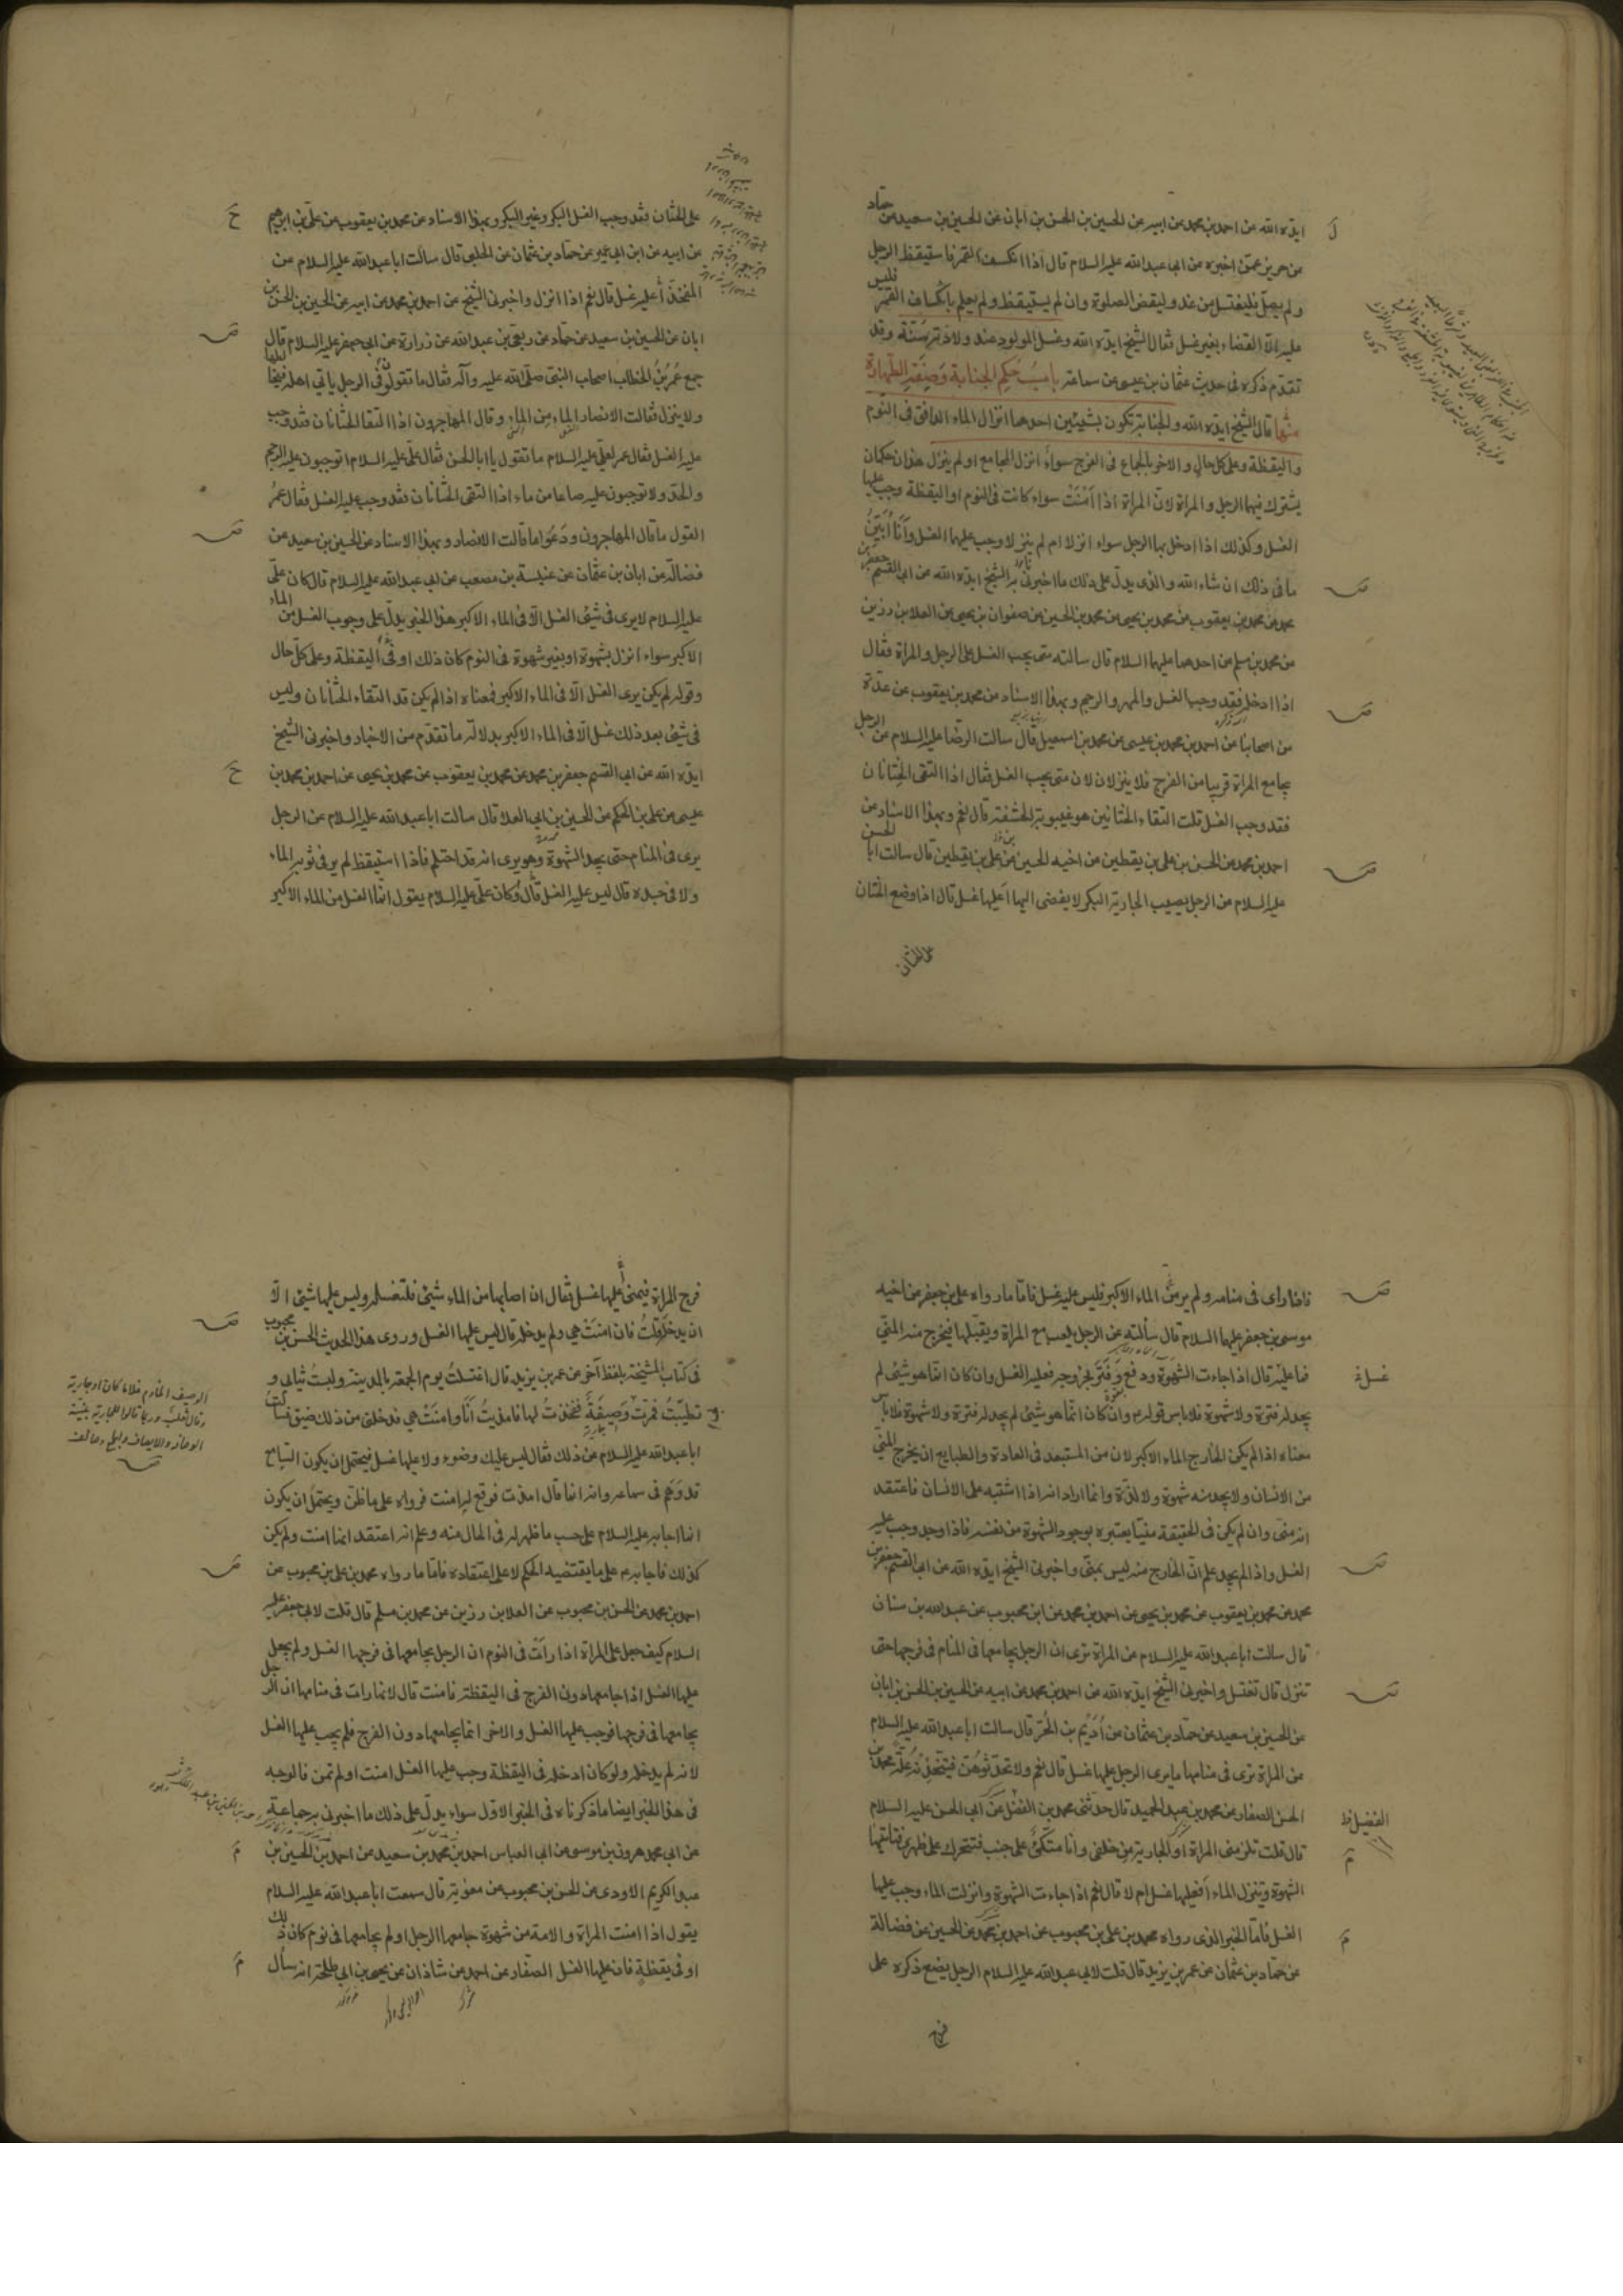 ايده الله عن احمد بن محمد عن ابيه عن الحسين بن الحسن بن ابان عن الحسين بن سعيد عن حماد
عن حريز عمن اخبره عن ابي عبدالله عليه السلام قال اذا انكسف القمر فاستيقظ الرجل
ولم يصل فليغتسل من غد وليقض الصلوة وان لم يستيقظ ولم يعلم بانكساف القمر فليس
عليه الا القضاء بغير غسل فقال الشيخ ايده الله وغسل المولود عند ولادته سنة وقد
تقدم ذكره في حديث عثمان بن عيسى عن سماعة باب حكم الجنابة وصفة الطهارة
منها قال الشيخ ايده الله والجنابة تكون بشيئين احدهما انزال الماء الدافق في النوم
واليقظة وعلى كل حال والاخر بالجماع في الفرج سواء انزل المجامع او لم ينزل هذان حكمان
يشترك فيهما الرجل والمراة لان المراة اذا امنت سواء كانت في النوم او اليقظة وجب عليها
الغسل وكذلك اذا ادخل بها الرجل سواء انزلا ام لم ينزلا وجب عليهما الغسل وانا ابين
ما في ذلك ان شاء الله والذي يدل على ذلك ما اخبرني به الشيخ ايده الله عن ابي القسم جعفر بن
محمد عن محمد بن يعقوب عن محمد بن يحيى عن محمد بن الحسين عن صفوان بن يحيى عن العلا بن رزين
عن محمد بن مسلم عن احدهما عليهما السلام قال سالته متى يجب الغسل على الرجل والمراة فقال
اذا ادخله فقد وجب الغسل والمهر والرجم وبهذا الاسناد عن محمد بن يعقوب عن عدة
من اصحابنا عن احمد بن محمد بن عيسى عن محمد بن اسمعيل قال سالت الرضا عليه السلام عن الرجل
يجامع المراة قريبا من الفرج فلا ينزلان متى يجب الغسل فقال اذا التقى الختانان
فقد وجب الغسل قلت التقاء الختانين هو غيبوبة الحشفة قال نعم وبهذا الاسناد عن
احمد بن محمد عن الحسن بن علي بن يقطين عن اخيه الحسين عن علي بن يقطين قال سالت ابا الحسن
عليه السلام عن الرجل يصيب الجارية البكر لا يفضى اليها اعليها غسل قال اذا وضع الختان
على الختان
على الختان فقد وجب الغسل البكر وغير البكر وبهذا الاسناد عن محمد بن يعقوب عن علي بن ابرهيم
عن ابيه عن ابن ابي عمير عن حماد بن عثمان عن الحلبي قال سالت ابا عبدالله عليه السلام عن
المفخذ أعليه غسل قال نعم اذا انزل واخبرني الشيخ عن احمد بن محمد عن ابيه عن الحسين بن الحسن بن
ابان عن الحسين بن سعيد عن حماد عن ربعي بن عبدالله عن زرارة عن ابي جعفر عليه السلام قال
جمع عمر بن الخطاب اصحاب النبي صلى الله عليه وآله فقال ما تقولون في الرجل ياتي اهله فيخالطها
ولا ينزل فقالت الانصار الماء من الماء وقال المهاجرون اذا التقا الختانان فقد وجب
عليه الغسل فقال عمر لعلي عليه السلام ما تقول يا ابا الحسن فقال علي عليه السلام اتوجبون عليه الرجم
والحد ولا توجبون عليه صاعا من ماء اذا التقى الختانان فقد وجب عليه الغسل فقال عمر
القول ما قال المهاجرون ودعوا ما قالت الانصار وبهذا الاسناد عن الحسين بن سعيد عن
فضالة عن ابان بن عثمان عن عنبسة بن مصعب عن ابي عبدالله عليه السلام قال كان علي
عليه السلام لا يرى في شئ الغسل الا في الماء الاكبر هذا الخبر يدل على وجوب الغسل من الماء
الاكبر سواء انزل بشهوة او بغير شهوة في النوم كان ذلك او في اليقظة وعلى كل حال
وقوله لم يكن يرى الغسل الا في الماء الاكبر فمعناه اذا لم يكن قد التقاء الختانان وليس
في شئ بعد ذلك غسل الا في الماء الاكبر بدلالة ما تقدم من الاخبار واخبرني الشيخ
ايده الله عن ابي القسم جعفر بن محمد عن محمد بن يعقوب عن محمد بن يحيى عن احمد بن محمد بن
عيسى عن علي بن الحكم عن الحسين بن ابي العلا قال سالت ابا عبدالله عليه السلام عن الرجل
يرى في المنام حتى يجد الشهوة وهو يرى انه قد احتلم فاذا استيقظ لم ير في ثوبه الماء
ولا في جسده قال ليس عليه الغسل قال وكان علي عليه السلام يقول انما الغسل من الماء الاكبر
فاذا راى في منامه ولم ير الماء الاكبر فليس عليه غسل فاما ما رواه علي بن جعفر عن اخيه
موسى بن جعفر عليهما السلام قال سألته عن الرجل يلعب مع المراة ويقبلها فيخرج منه المني
فما عليه قال اذا جاءت الشهوة ودفع وفتر لخروجه فعليه الغسل وان كان انما هو شئ لم
يجد له فترة ولا شهوة فلا باس قوله وان كان انما هو شئ لم يجد له فترة ولا شهوة فلا باس
معناه اذا لم يكن الخارج الماء الاكبر لان من المستبعد في العادة والطبايع ان يخرج المني
من الانسان ولا يجد منه شهوة ولا لذة وانما اراد انه اذا اشتبه على الانسان فاعتقد
انه مني وان لم يكن في الحقيقة منيا يعتبره بوجود الشهوة من نفسه فاذا وجد وجب عليه
الغسل واذا لم يجد علم ان الخارج منه ليس بمني واخبرني الشيخ ايده الله عن ابي القسم جعفر بن
محمد عن محمد بن يعقوب عن محمد بن يحيى عن احمد بن محمد عن ابن محبوب عن عبدالله بن سنان
قال سالت ابا عبدالله عليه السلام عن المراة ترى ان الرجل يجامعها في المنام في فرجها حتى
تنزل قال تغتسل واخبرني الشيخ ايده الله عن احمد بن محمد عن ابيه عن الحسين بن الحسن بن ابان
عن الحسين بن سعيد عن حماد بن عثمان عن أديم بن الحر قال سالت ابا عبدالله عليه السلام
عن المراة ترى في منامها ما يرى الرجل عليها غسل قال نعم ولا تحدثوهن فيتخذنه علة محمد بن
الحسن الصفار عن محمد بن عبد الحميد قال حدثني محمد بن الفضل عن ابي الحسن عليه السلام
قال قلت تلزمني المراة او الجارية من خلفي وانا متكئ على جنب فتتحرك على ظهري فتاتيها
الشهوة وتنزل الماء أفعليها غسل ام لا قال نعم اذا جاءت الشهوة وانزلت الماء وجب عليها
الغسل فاما الخبر الذي رواه محمد بن علي بن محبوب عن احمد بن محمد عن الحسين عن فضالة
عن حماد بن عثمان عن عمر بن يزيد قال قلت لابي عبدالله عليه السلام الرجل يضع ذكره على
فرج
فرج المراة فيمني أعليها غسل فقال ان اصابها من الماء شئ فلتغسله وليس عليها شئ الا
ان يدخله قلت فان امنت هي ولم يدخله قال ليس عليها الغسل وروى هذا الحديث الحسن بن محبوب
في كتاب المشيخة بلفظ آخر عن عمر بن يزيد قال اغتسلت يوم الجمعة بالمدينة ولبست ثيابي و
تطيبت فمرت وصيفة ففخذت لها فامذيت أنا وامنت هي فدخلني من ذلك ضيق فسالت
ابا عبدالله عليه السلام عن ذلك فقال ليس عليك وضوء ولا عليها غسل فيحتمل ان يكون السامع
قد وهم في سماعه وانه انما قال امذت فوقع له امنت فرواه على ما ظن ويحتمل ان يكون
انما اجابه عليه السلام على حسب ما ظهر له في الحال منه وعلم انه اعتقد انها امنت ولم يكن
كذلك فاجابه على ما يقتضيه الحكم لا على اعتقاده فاما ما رواه محمد بن علي بن محبوب عن
احمد بن محمد عن الحسن بن محبوب عن العلا بن رزين عن محمد بن مسلم قال قلت لابي جعفر عليه
السلام كيف جعل على المراة اذا رات في النوم ان الرجل يجامعها في فرجها الغسل ولم يجعل
عليها الغسل اذا جامعها دون الفرج في اليقظة فامنت قال لانها رات في منامها ان الرجل
يجامعها في فرجها فوجب عليها الغسل والاخر انما يجامعها دون الفرج فلم يجب عليها الغسل
لانه لم يدخله ولو كان ادخله في اليقظة وجب عليها الغسل امنت او لم تمن فالوجه
في هذا الخبر ايضا ما ذكرناه في الخبر الاول سواء يدل على ذلك ما اخبرني به جماعة
عن ابي محمد هرون بن موسى عن ابي العباس احمد بن محمد بن سعيد عن احمد بن الحسين بن
عبد الكريم الاودي عن الحسن بن محبوب عن معوية قال سمعت ابا عبدالله عليه السلام
يقول اذا امنت المراة والامة من شهوة جامعها الرجل او لم يجامعها في نوم كان ذلك
او في يقظة فان عليها الغسل الصفار عن احمد عن شاذان عن يحيى بن ابي طلحة انه سأل